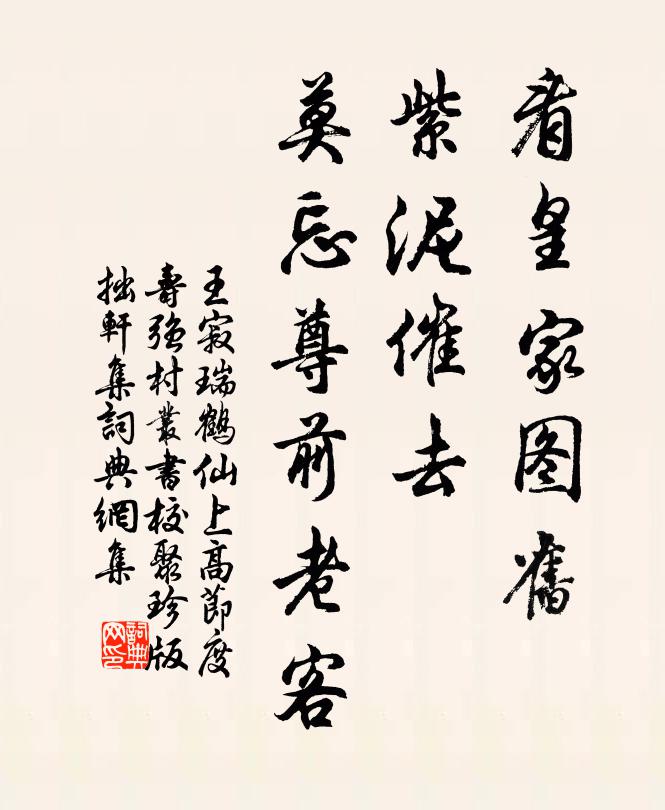 看皇家图旧
紫泥催去
莫忘尊前老客
王寂瑞鶴仙上高節度
壽強村叢書校聚珍版
拙軒集詞典網集
詞典網印